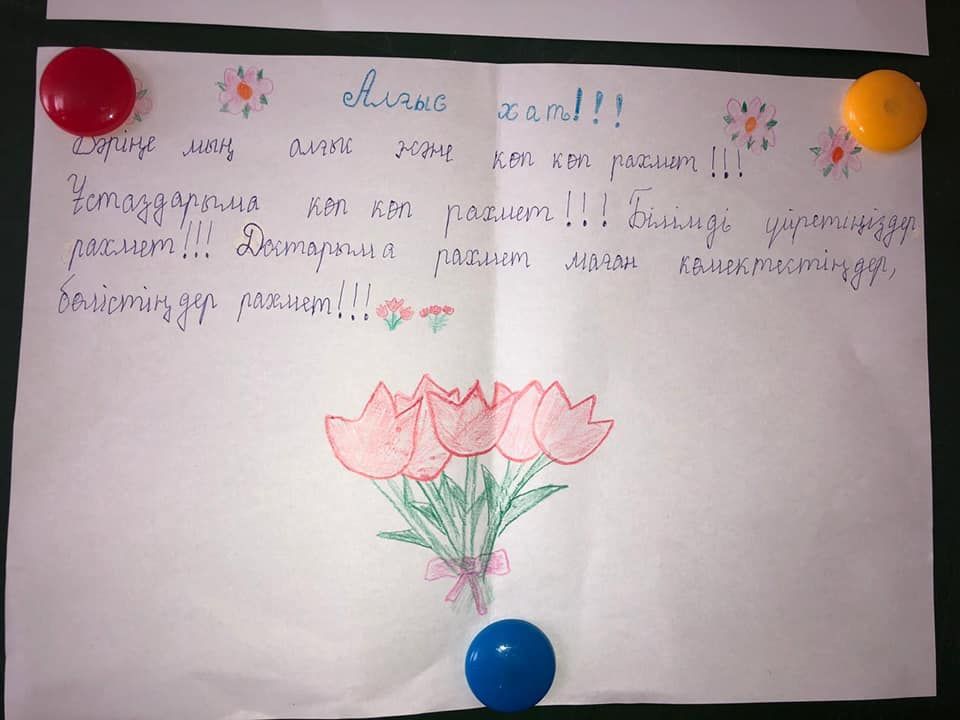 Алғыс хат!!!
Бәріңе мың алғыс және көп көп рахмет!!!
Ұстаздарыма көп көп рахмет!!! Білімді үйретіңіздер
рахмет!!! Достарыма рахмет маған көмектестіңдер,
бөлістіңдер рахмет!!!